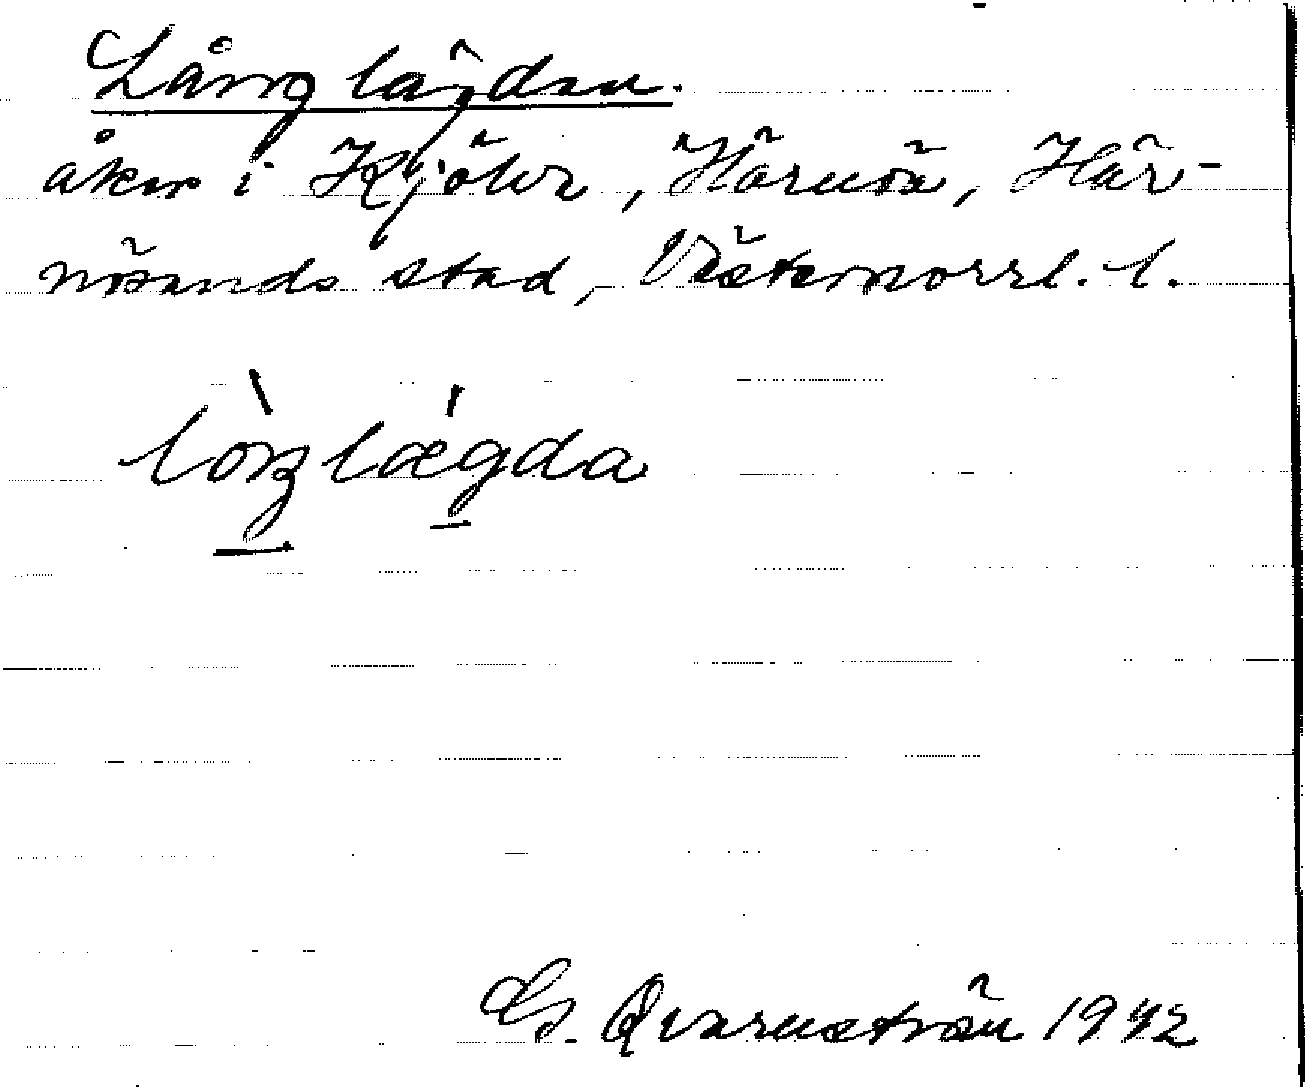 Långlägdan.
åker i Kjölen, Härnön, Här-
nösands stad, Västernorrl. l.
lòŋlǽgda
G. Qvarnström 1942